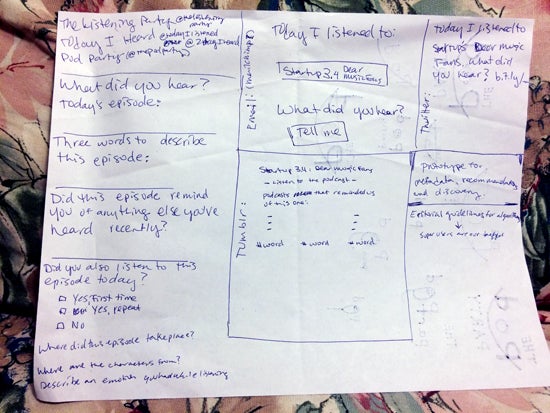 The Listening Party @thelistening
party
Today I Heard @todayIlistened
Pod Party @mepodparty
What did you hear?
Today's episode:
Three words to describe
this episode:
Did this episode remind
you of anything else you've
heard recently?
Did you also listen to this
episode today?
Yes, first time
Yes, repeat
No
Where did this episode take place?
Where are the characters from?
Describe an emotion you had while listening
Email: (mailchimp?)
Today I listened to:
Startup 3.4 Dear
Music Fans
What did you hear?
Tell me
Tumblr:
Startup 3.4: Dear Music Fans
- Listen to the podcast -
podcasts that reminded us
of this one:
#word #word #word
Twitter:
Today I listened to
Startup's Dear Music
Fans. What did
you hear? bit.ly/
prototype for
metadata, recommendations
and discovery
Editorial guidelines for algorithm
super users are our